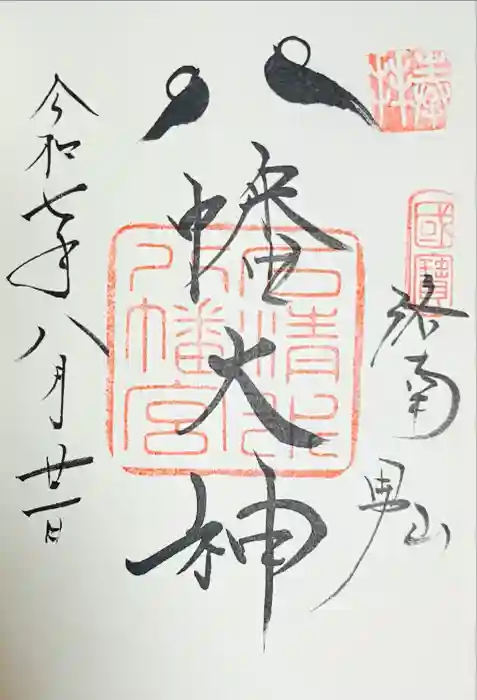 奉拝
國寶
洛南 男山
八幡大神
石清水
八幡宮
令和七年八月廿一日